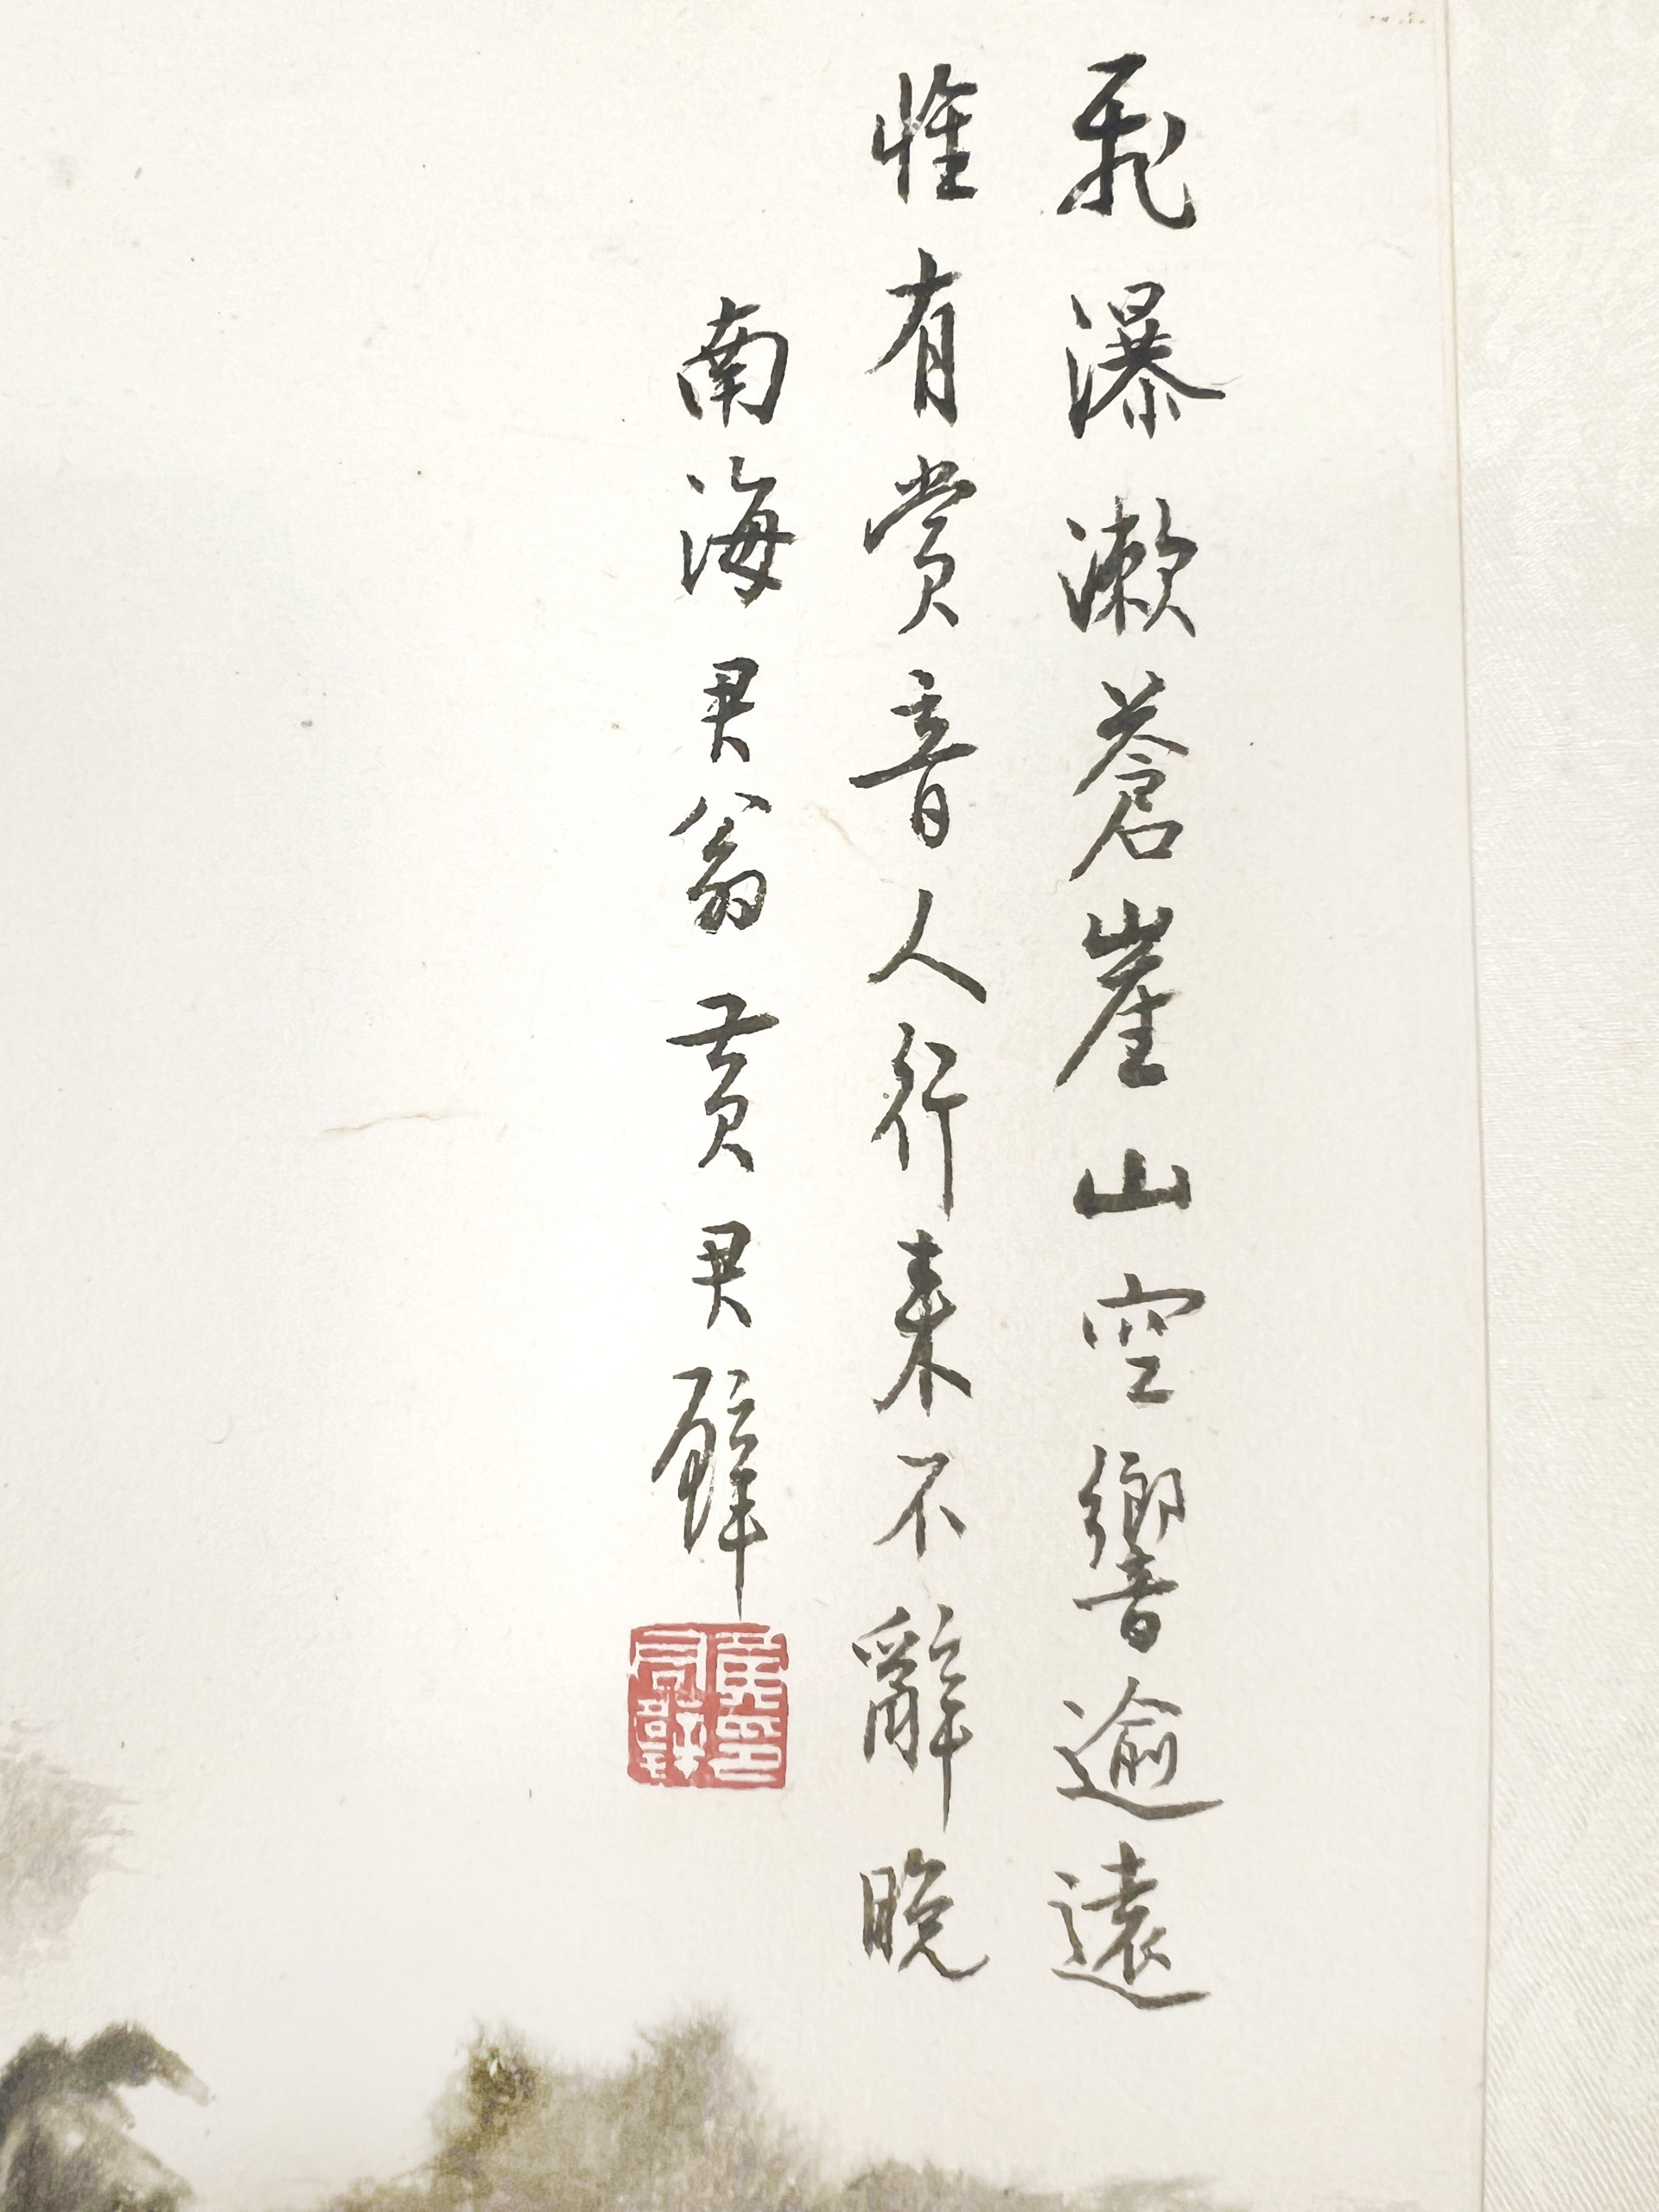 飛瀑漱蒼崖山空響逾遠
惟有賞音人行来不辭晚
南海君翁黄君璧